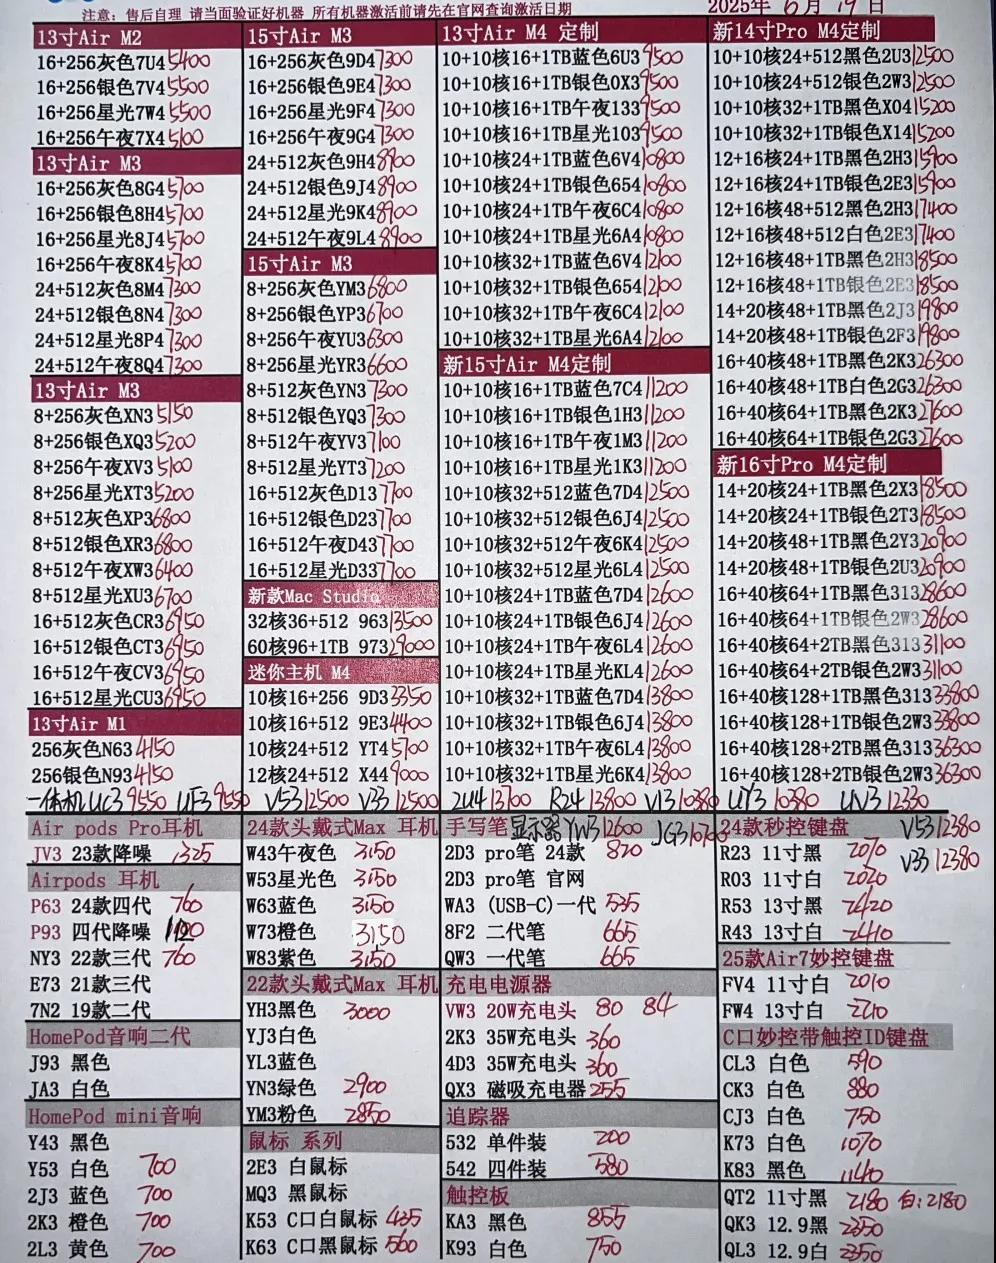 注意：售后自理 请当面验证好机器 所有机器激活前请先在官网查询激活日期
2025年 6月 19日
13寸Air M2
16+256灰色7U4 5400
16+256银色7V4 5500
16+256星光7W4 5500
16+256午夜7X4 5100
13寸Air M3
16+256灰色8G4 5700
16+256银色8H4 5700
16+256星光8J4 5700
16+256午夜8K4 5700
24+512灰色8M4 7300
24+512银色8N4 7300
24+512星光8P4 7300
24+512午夜8Q4 7300
13寸Air M3
8+256灰色XN3 5150
8+256银色XQ3 5200
8+256午夜XV3 5100
8+256星光XT3 5200
8+512灰色XP3 6800
8+512银色XR3 6800
8+512午夜XW3 6400
8+512星光XU3 6700
16+512灰色CR3 6950
16+512银色CT3 6950
16+512午夜CV3 6950
16+512星光CU3 6950
13寸Air M1
256灰色N63 4150
256银色N93 4150
15寸Air M3
16+256灰色9D4 7300
16+256银色9E4 7300
16+256星光9F4 7300
16+256午夜9G4 7300
24+512灰色9H4 8900
24+512银色9J4 8900
24+512星光9K4 8900
24+512午夜9L4 8900
15寸Air M3
8+256灰色YM3 6800
8+256银色YP3 6700
8+256午夜YU3 6300
8+256星光YR3 6600
8+512灰色YN3 7300
8+512银色YQ3 7300
8+512午夜YV3 7100
8+512星光YT3 7200
16+512灰色D13 7700
16+512银色D23 7700
16+512午夜D43 7700
16+512星光D33 7700
新款Mac Studio
32核36+512 963 13500
60核96+1TB 973 29000
迷你主机 M4
10核16+256 9D3 3350
10核16+512 9E3 4400
10核24+512 YT4 5700
12核24+512 X44 9000
13寸Air M4 定制
10+10核16+1TB蓝色6U3 9500
10+10核16+1TB银色0X3 9500
10+10核16+1TB午夜133 9500
10+10核16+1TB星光103 9500
10+10核24+1TB蓝色6V4 10800
10+10核24+1TB银色654 10800
10+10核24+1TB午夜6C4 10800
10+10核24+1TB星光6A4 10800
10+10核32+1TB蓝色6V4 12100
10+10核32+1TB银色654 12100
10+10核32+1TB午夜6C4 12100
10+10核32+1TB星光6A4 12100
新15寸Air M4定制
10+10核16+1TB蓝色7C4 11200
10+10核16+1TB银色1H3 11200
10+10核16+1TB午夜1M3 11200
10+10核16+1TB星光1K3 11200
10+10核32+512蓝色7D4 12500
10+10核32+512银色6J4 12500
10+10核32+512午夜6K4 12500
10+10核32+512星光6L4 12500
10+10核24+1TB蓝色7D4 12600
10+10核24+1TB银色6J4 12600
10+10核24+1TB午夜6L4 12600
10+10核24+1TB星光KL4 12600
10+10核32+1TB蓝色7D4 13800
10+10核32+1TB银色6J4 13800
10+10核32+1TB午夜6L4 13800
10+10核32+1TB星光6K4 13800
新14寸Pro M4定制
10+10核24+512黑色2U3 12500
10+10核24+512银色2W3 12500
10+10核32+1TB黑色X04 15200
10+10核32+1TB银色X14 15200
12+16核24+1TB黑色2H3 15900
12+16核24+1TB银色2E3 15900
12+16核48+512黑色2H3 17400
12+16核48+512白色2E3 17400
12+16核48+1TB黑色2H3 18500
12+16核48+1TB银色2E3 18500
14+20核48+1TB黑色2J3 19800
14+20核48+1TB银色2F3 19800
16+40核48+1TB黑色2K3 26300
16+40核48+1TB白色2G3 26300
16+40核64+1TB黑色2K3 27600
16+40核64+1TB银色2G3 27600
新16寸Pro M4定制
14+20核24+1TB黑色2X3 18500
14+20核24+1TB银色2T3 18500
14+20核48+1TB黑色2Y3 20900
14+20核48+1TB银色2U3 20900
16+40核64+1TB黑色313 28600
16+40核64+1TB银色2W3 28600
16+40核64+2TB黑色313 31100
16+40核64+2TB银色2W3 31100
16+40核128+1TB黑色313 33800
16+40核128+1TB银色2W3 33800
16+40核128+2TB黑色313 36300
16+40核128+2TB银色2W3 36300
一体机 UC3 9550 UF3 9550 V53 12500 V33 12500 2U4 13700 R24 13800 V13 10380 UY3 10380 UN3 12330
Air pods Pro耳机
JV3 23款降噪 1325
Airpods 耳机
P63 24款四代 760
P93 四代降噪
NY3 22款三代 760
E73 21款三代
7N2 19款二代
HomePod音响二代
J93 黑色
JA3 白色
HomePod mini音响
Y43 黑色
Y53 白色 700
2J3 蓝色 700
2K3 橙色 700
2L3 黄色 700
24款头戴式Max 耳机
W43午夜色 3150
W53星光色 3150
W63蓝色 3150
W73橙色 3150
W83紫色 3150
22款头戴式Max 耳机
YH3黑色 3000
YJ3白色
YL3蓝色
YN3绿色 2900
YM3粉色 2850
鼠标 系列
2E3 白鼠标
MQ3 黑鼠标
K53 C口白鼠标 435
K63 C口黑鼠标 560
手写笔 显示器 YW3 12600 JG3 10700
2D3 pro笔 24款 820
2D3 pro笔 官网
WA3 (USB-C)一代 535
8F2 二代笔 665
QW3 一代笔 665
充电电源器
VW3 20W充电头 80 84
2K3 35W充电头 360
4D3 35W充电头 360
QX3 磁吸充电器 255
追踪器
532 单件装 200
542 四件装 580
触控板
KA3 黑色 855
K93 白色 750
24款秒控键盘 V53 12380
V33 12380
R23 11寸黑 2070
R03 11寸白 2020
R53 13寸黑 2420
R43 13寸白 2410
25款Air7妙控键盘
FV4 11寸白 2010
FW4 13寸白 2210
C口妙控带触控ID键盘
CL3 白色 590
CK3 白色 880
CJ3 白色 750
K73 白色 1070
K83 黑色 1140
QT2 11寸黑 2180 白:2180
QK3 12.9黑 2350
QL3 12.9白 2350